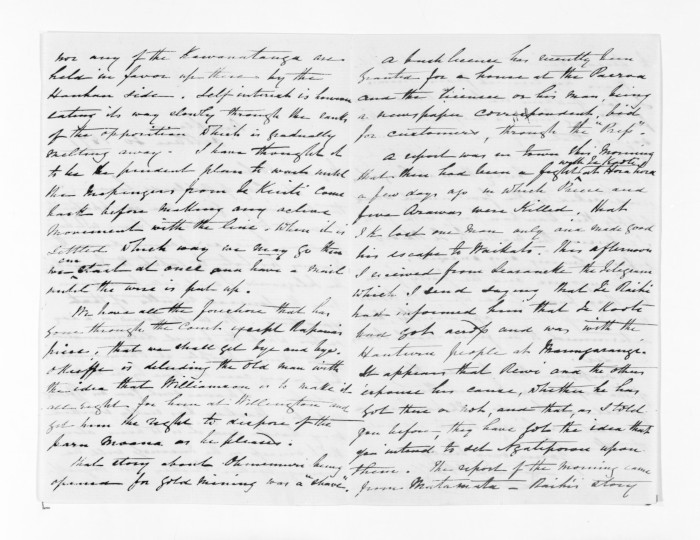 nor any of the Kawanatanga are
held in favor up there by the
Hauhau side. Self interest is however
eating its way slowly through the ranks
of the opposition which is gradually
melting away. I have thought it
to be the prudent plan to wait until
the from te Kuiti come
back before making any active
movement with the line. When it is
settled which way we may go then
we can start at once and have a
until the wire is put up.
We have all the foreshore that has
gone through the Court except Rapana's
piece, that we shall get bye and bye.
O'Keeffe is deluding the old man with
the idea that Williamson is to make it
all right for him at Wellington and
get him the right to dispose of the
Moana as he pleases.
That story about Ohinemuri being
opened for gold mining was a "shave".
A bush licence has recently been
granted for a house at the Paeroa
and the licensee or his man being
a newspaper correspondent, bid
for customers, through the "Press".
A report was in town this morning
that there had been a fight with Te Kooti at
a few days ago in which and
five Arawas were killed, that
T.K. lost one man only and made good
his escape to Waikato. This afternoon
I received from the telegram
which I send saying that Te Raihi
had informed him that Te Kooti
had got across and was with the
Hauturu people at
It appears that Rewi and the others
espouse his cause, whether he has
got there or not, and that, as I told
you before, they have got the idea that
you intend to set Ngatiporou upon
them. The report of the morning came
from Matamata — Raihi's story